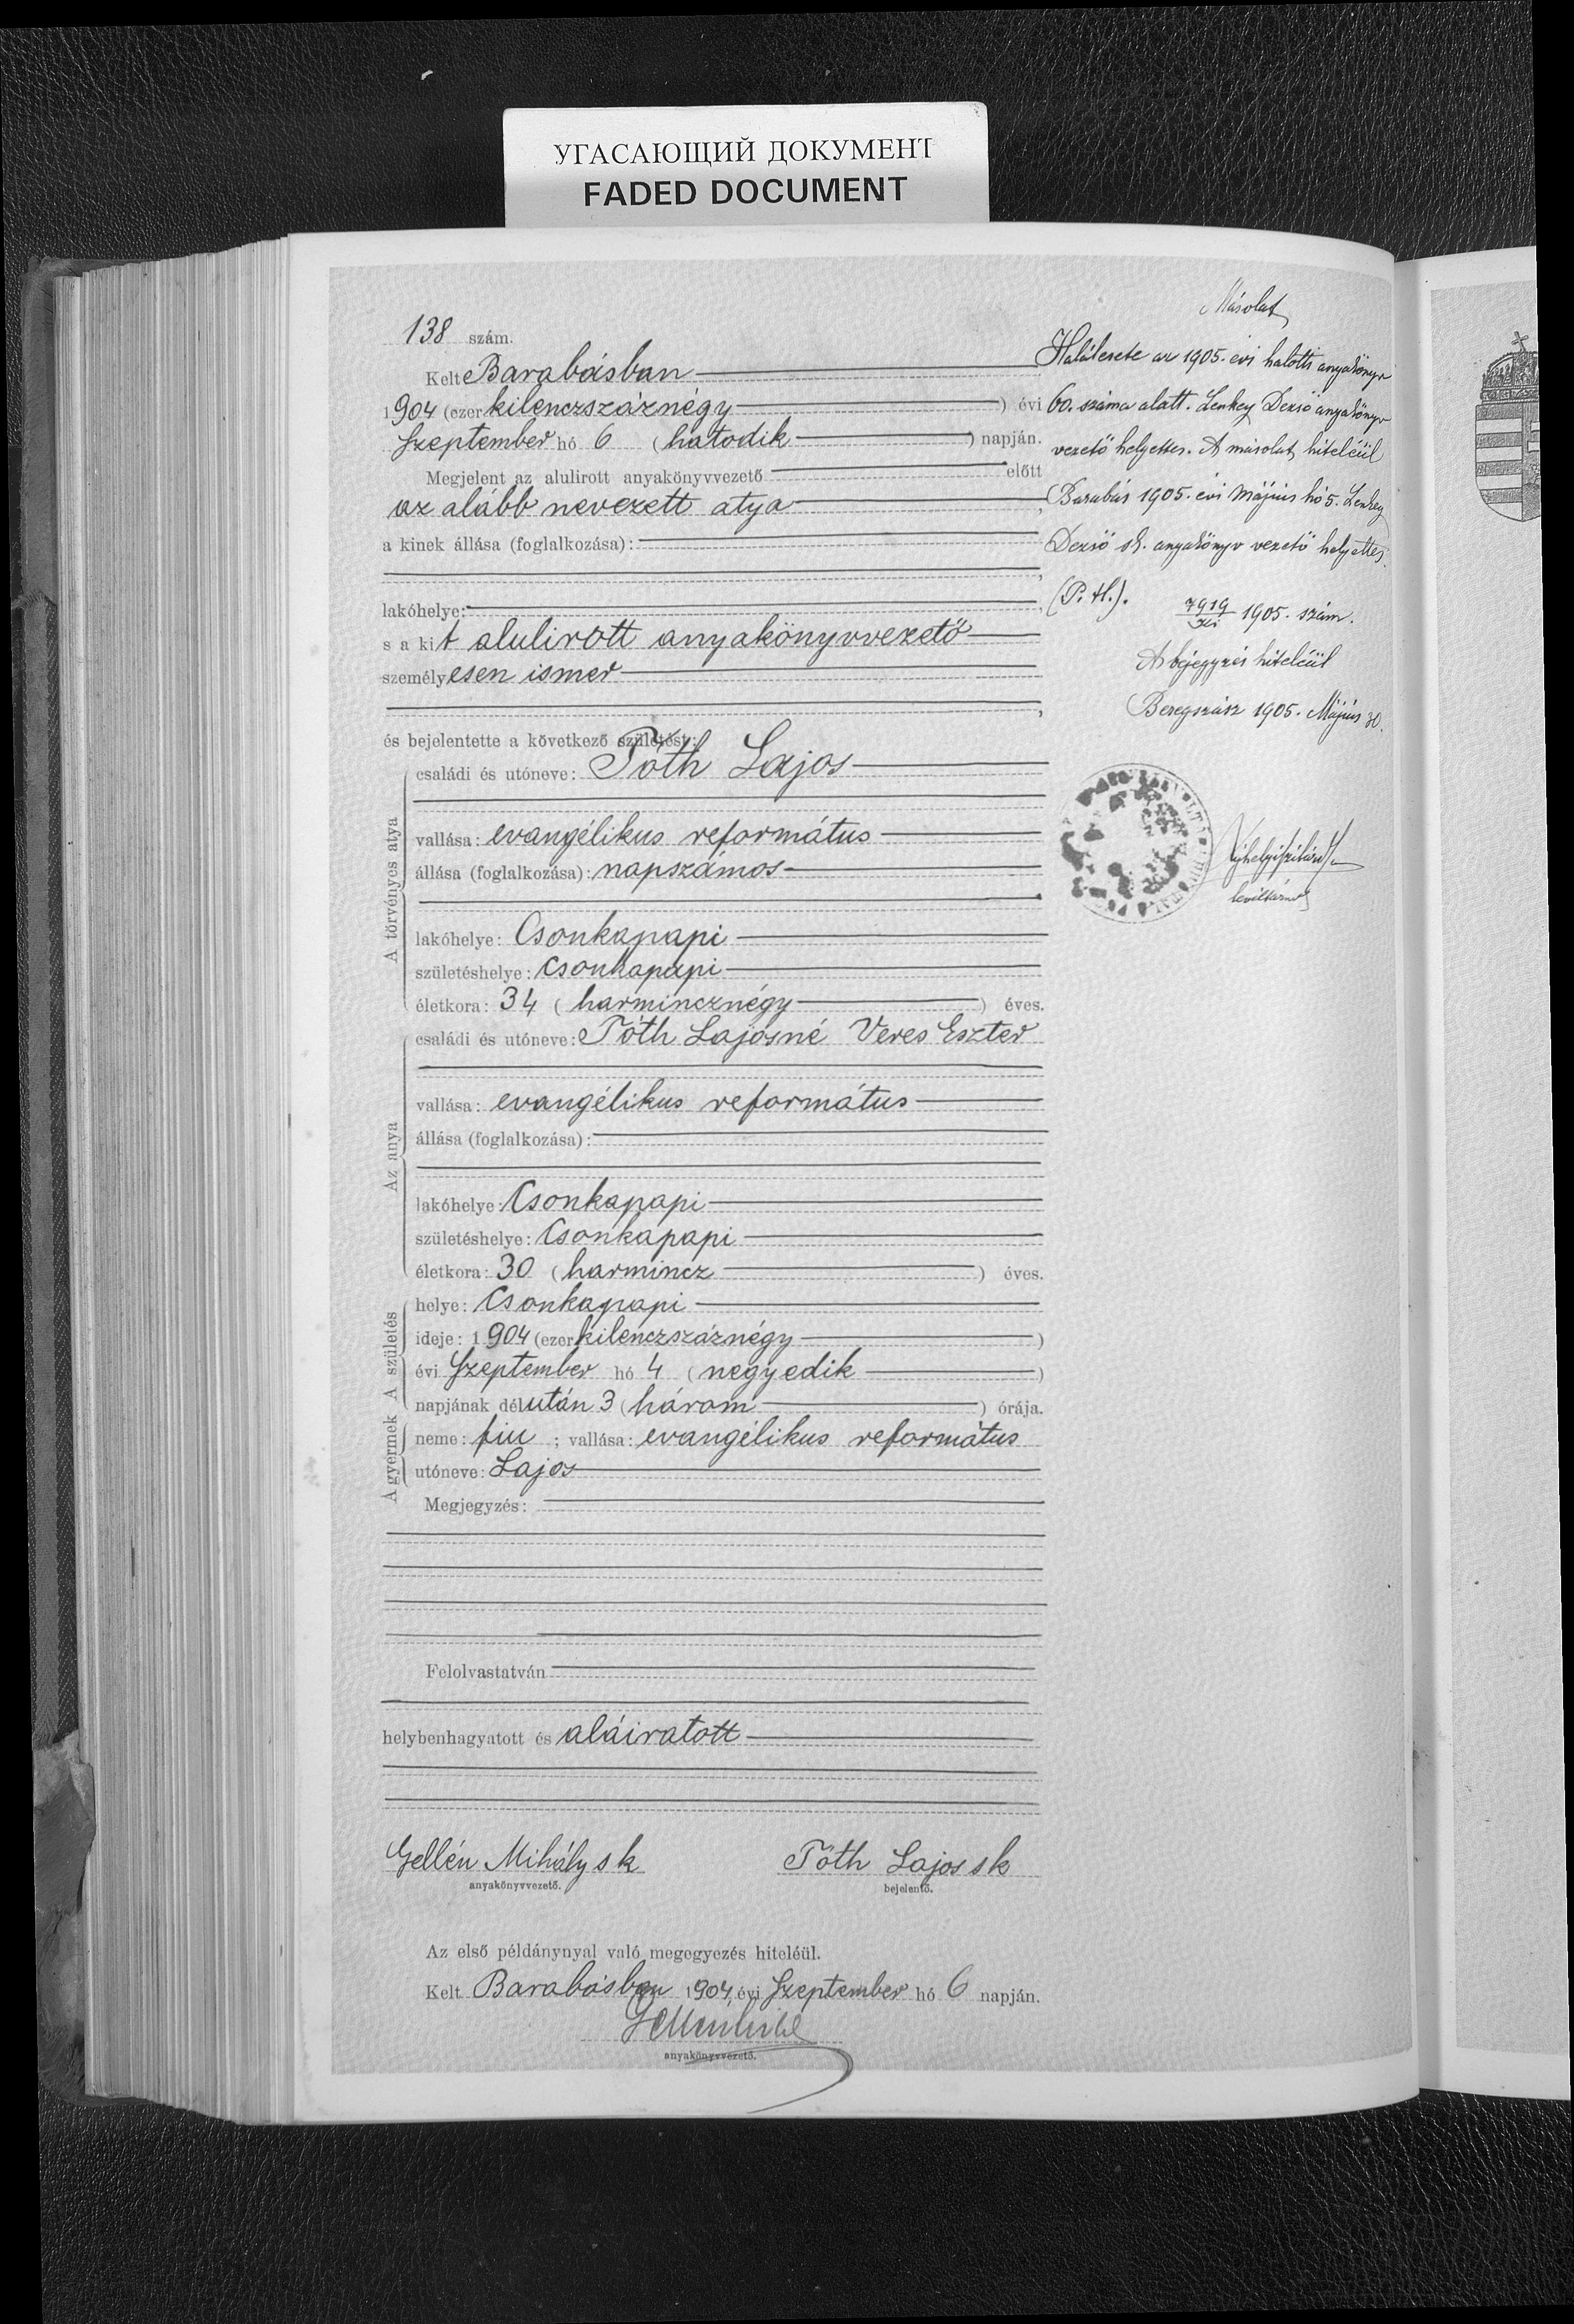 УГАСАЮЩИЙ ДОКУМЕНТ
FADED DOCUMENT
138 szám.
Kelt Barabásban
1904 (ezer kilenczszáznégy) évi
Szeptember hó 6 (hatodik) napján.
Megjelent az alulirott anyakönyvvezető előtt
az alább nevezett atya,
a kinek állása (foglalkozása):
lakóhelye:
s a kit alulirott anyakönyvvezető
személyesen ismer,
és bejelentette a következő születést:
A törvényes atya
családi és utóneve: Tóth Lajos
vallása: evangélikus református
állása (foglalkozása): napszámos
lakóhelye: Csonkapapi
születéshelye: Csonkapapi
életkora: 34 (harmincznégy) éves.
Az anya
családi és utóneve: Tóth Lajosné Veres Eszter
vallása: evangélikus református
állása (foglalkozása):
lakóhelye: Csonkapapi
születéshelye: Csonkapapi
életkora: 30 (harmincz) éves.
A születés
helye: Csonkapapi
ideje: 1904 (ezer kilenczszáznégy)
évi Szeptember hó 4 (negyedik)
napjának délután 3 (három) órája.
A gyermek
neme: fiu; vallása: evangélikus református
utóneve: Lajos
Megjegyzés:
Felolvastatván
helybenhagyatott és aláiratott
Gellén Mihály sk
anyakönyvvezető.
Tóth Lajos sk
bejelentő.
Az első példánynyal való megegyezés hiteléül.
Kelt Barabásban 1904, évi Szeptember hó 6 napján.
anyakönyvvezető.
Másolat
Halálesete az 1905. évi halotti anyakönyv
60. száma alatt. Lenkey Dezső anyakönyv
vezető helyettes. A másolat hiteléül
Barabás 1905. évi Május hó 5. Lenkey
Dezső sk. anyakönyv vezető helyettes.
(P. H.).
7919/xi 1905. szám.
A bejegyzés hiteléül
Beregszász 1905. Május 30.
levéltárnok